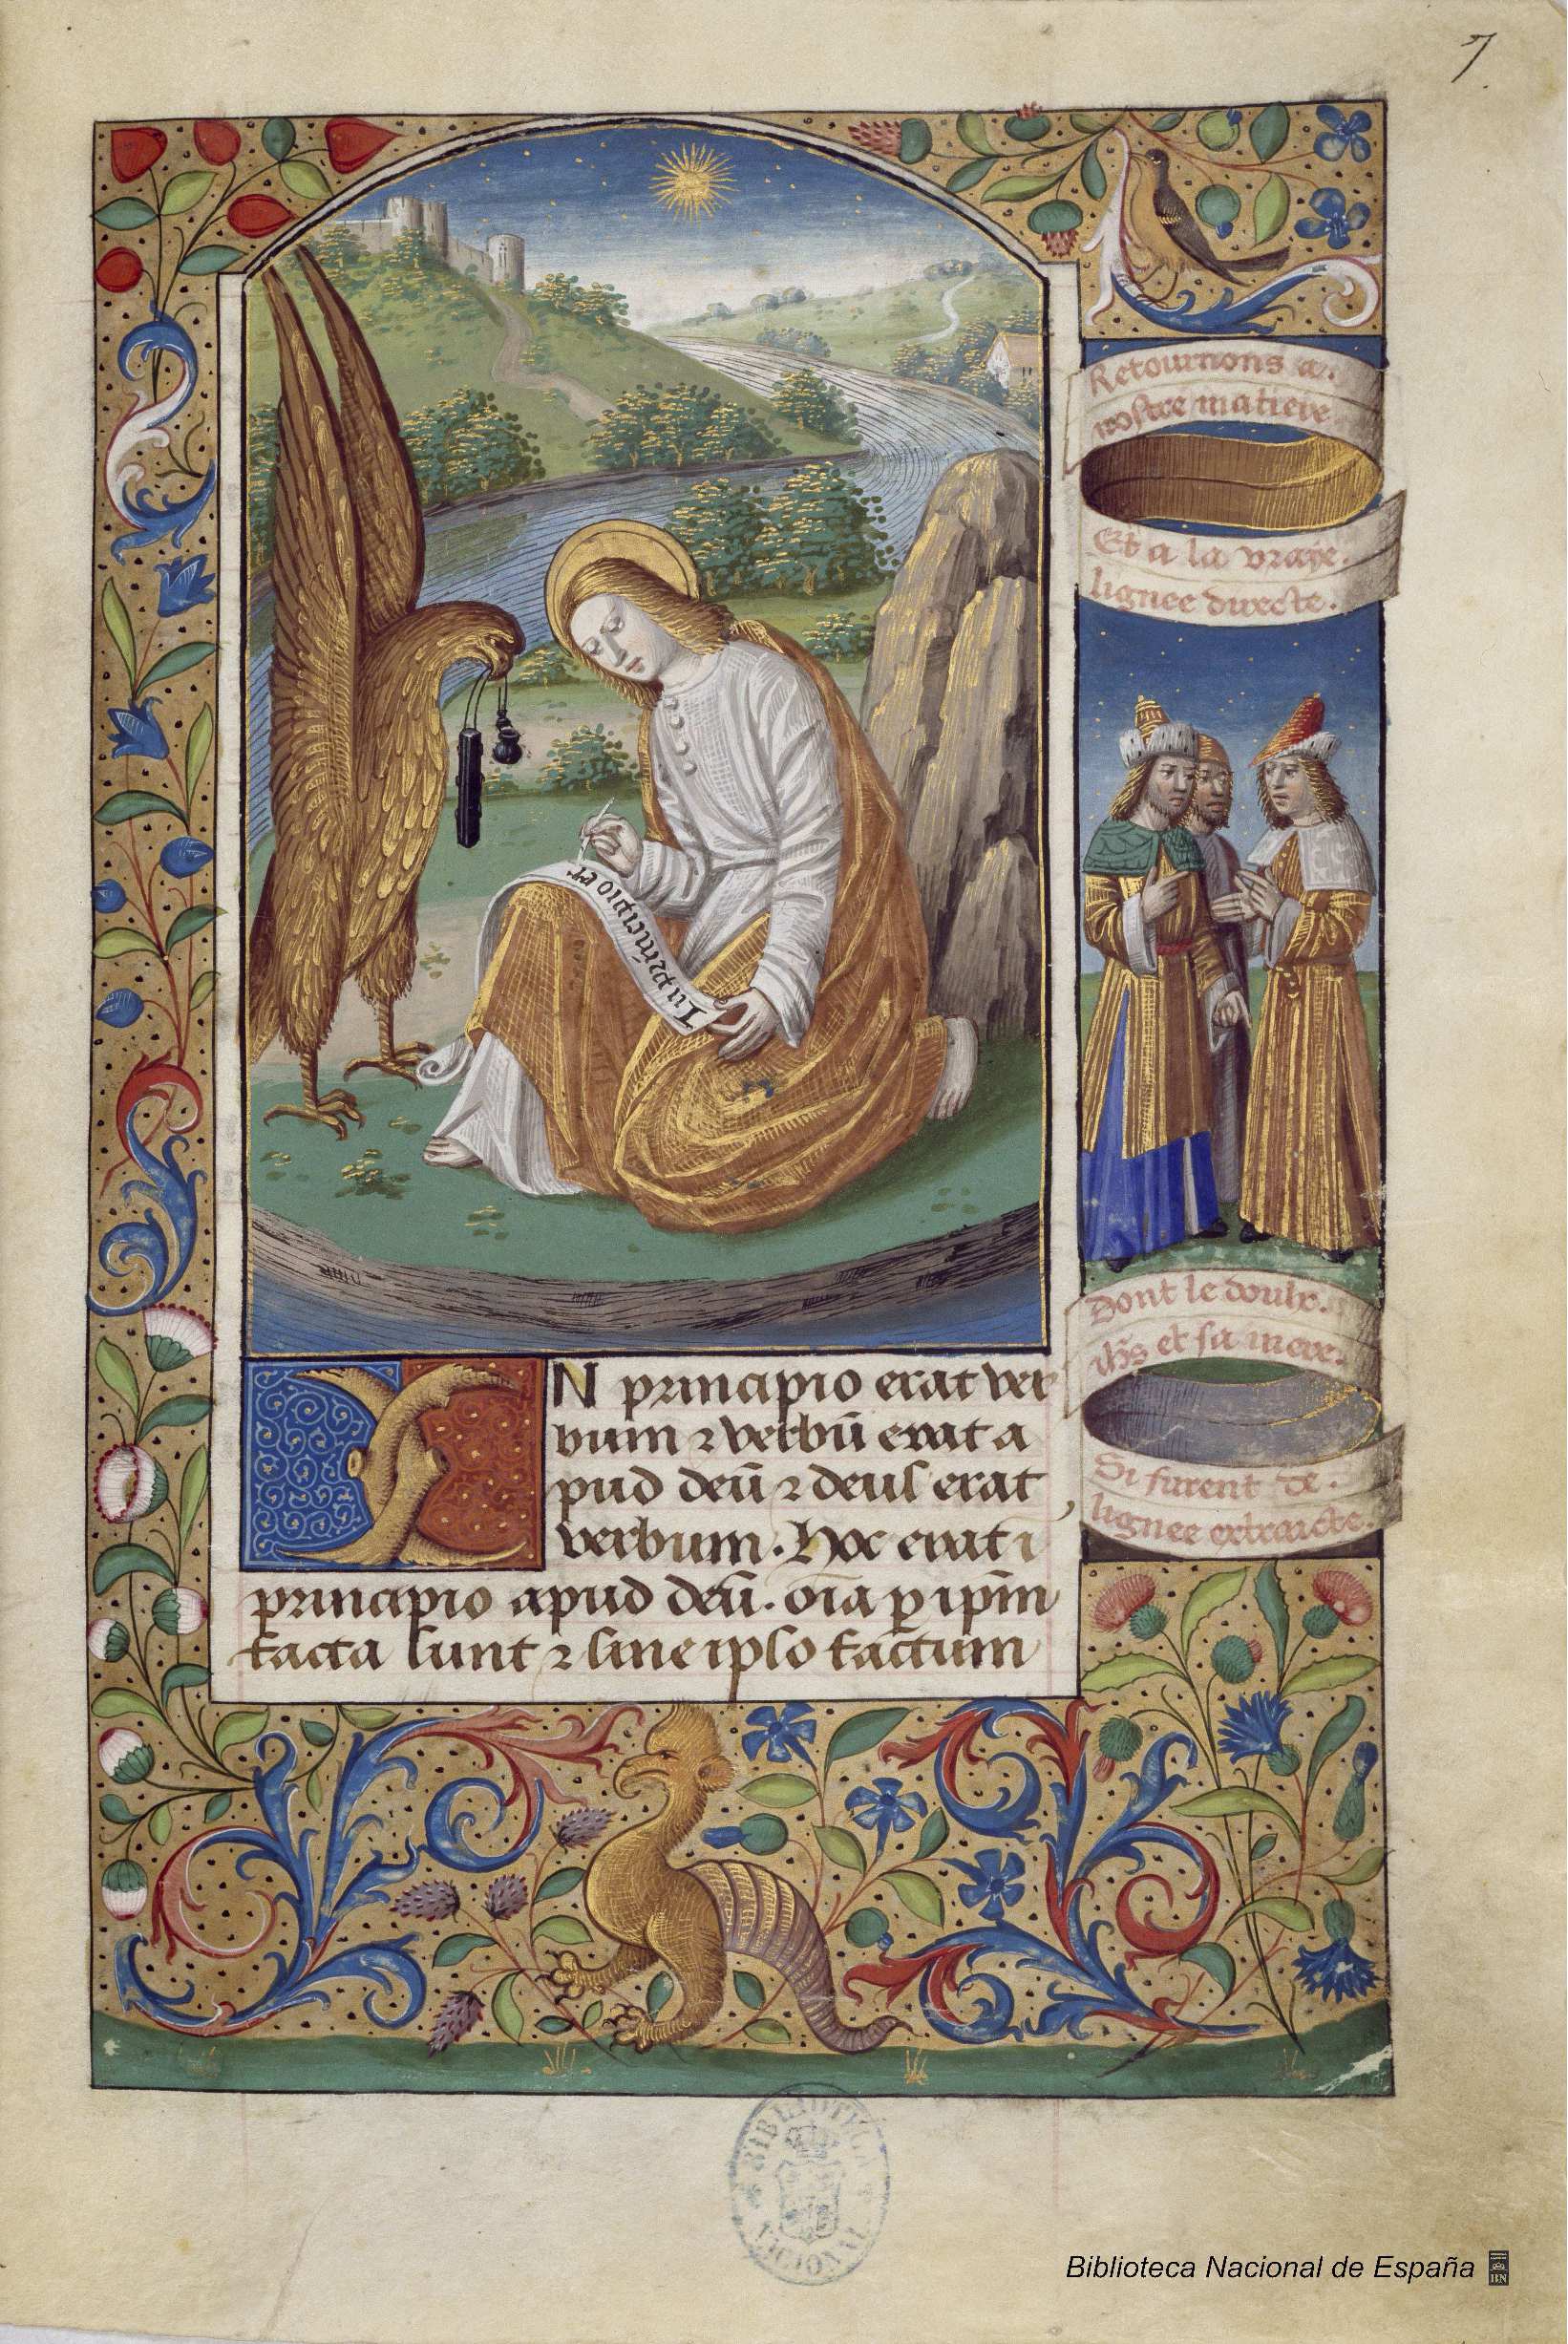 7
Retournons a.
nostre matiere
Et a la vraye.
lignee directe.
In principio er
Dont le doulx.
ihs et sa mere.
Si furent de.
lignee extraicte.
N principio erat ver
bum ⁊ verbū erat a
pud deū ⁊ deus erat
verbum. Hoc erat ī
principio apud deū. oīa ꝑ ipm̄
facta sunt ⁊ sine ipso factum
BIBLIOTECA NACIONAL
Biblioteca Nacional de España
BN